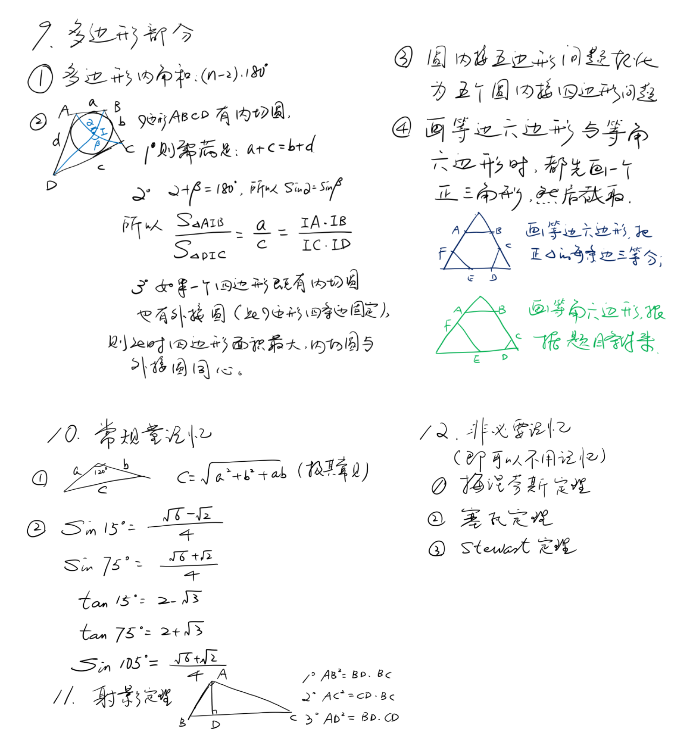 9. 多边形部分
① 多边形内角和:(n-2)·180°
② 四边形ABCD 有内切圆,
A a B b C c D d I α β
1° 则需满足: a+c=b+d
2° α+β=180°, 所以 Sinα=Sinβ
所以 S△AIB/S△DIC = a/c = IA·IB/IC·ID
3° 如果一个四边形既有内切圆
也有外接圆(此四边形四条边固定),
则此时四边形面积最大,内切圆与
外接圆同心。
③ 圆内接五边形问题转化
为五个圆内接四边形问题
④ 画等边六边形与等角
六边形时,都先画一个
正三角形,然后截取.
A B C D E F
画等边六边形,把
正△的每条边三等分;
A B C D E F
画等角六边形,根
据题目条件来.
10. 常规量记忆
① a 120° b c C=√a²+b²+ab (极其常见)
② Sin 15°= √6-√2/4
Sin 75°= √6+√2/4
tan 15°= 2-√3
tan 75°= 2+√3
Sin 105°= √6+√2/4
11. 射影定理
A B D C
1° AB²=BD·BC
2° AC²=CD·BC
3° AD²=BD·CD
12. 非必要记忆
(即可以不用记忆)
① 梅涅劳斯定理
② 塞瓦定理
③ Stewart 定理